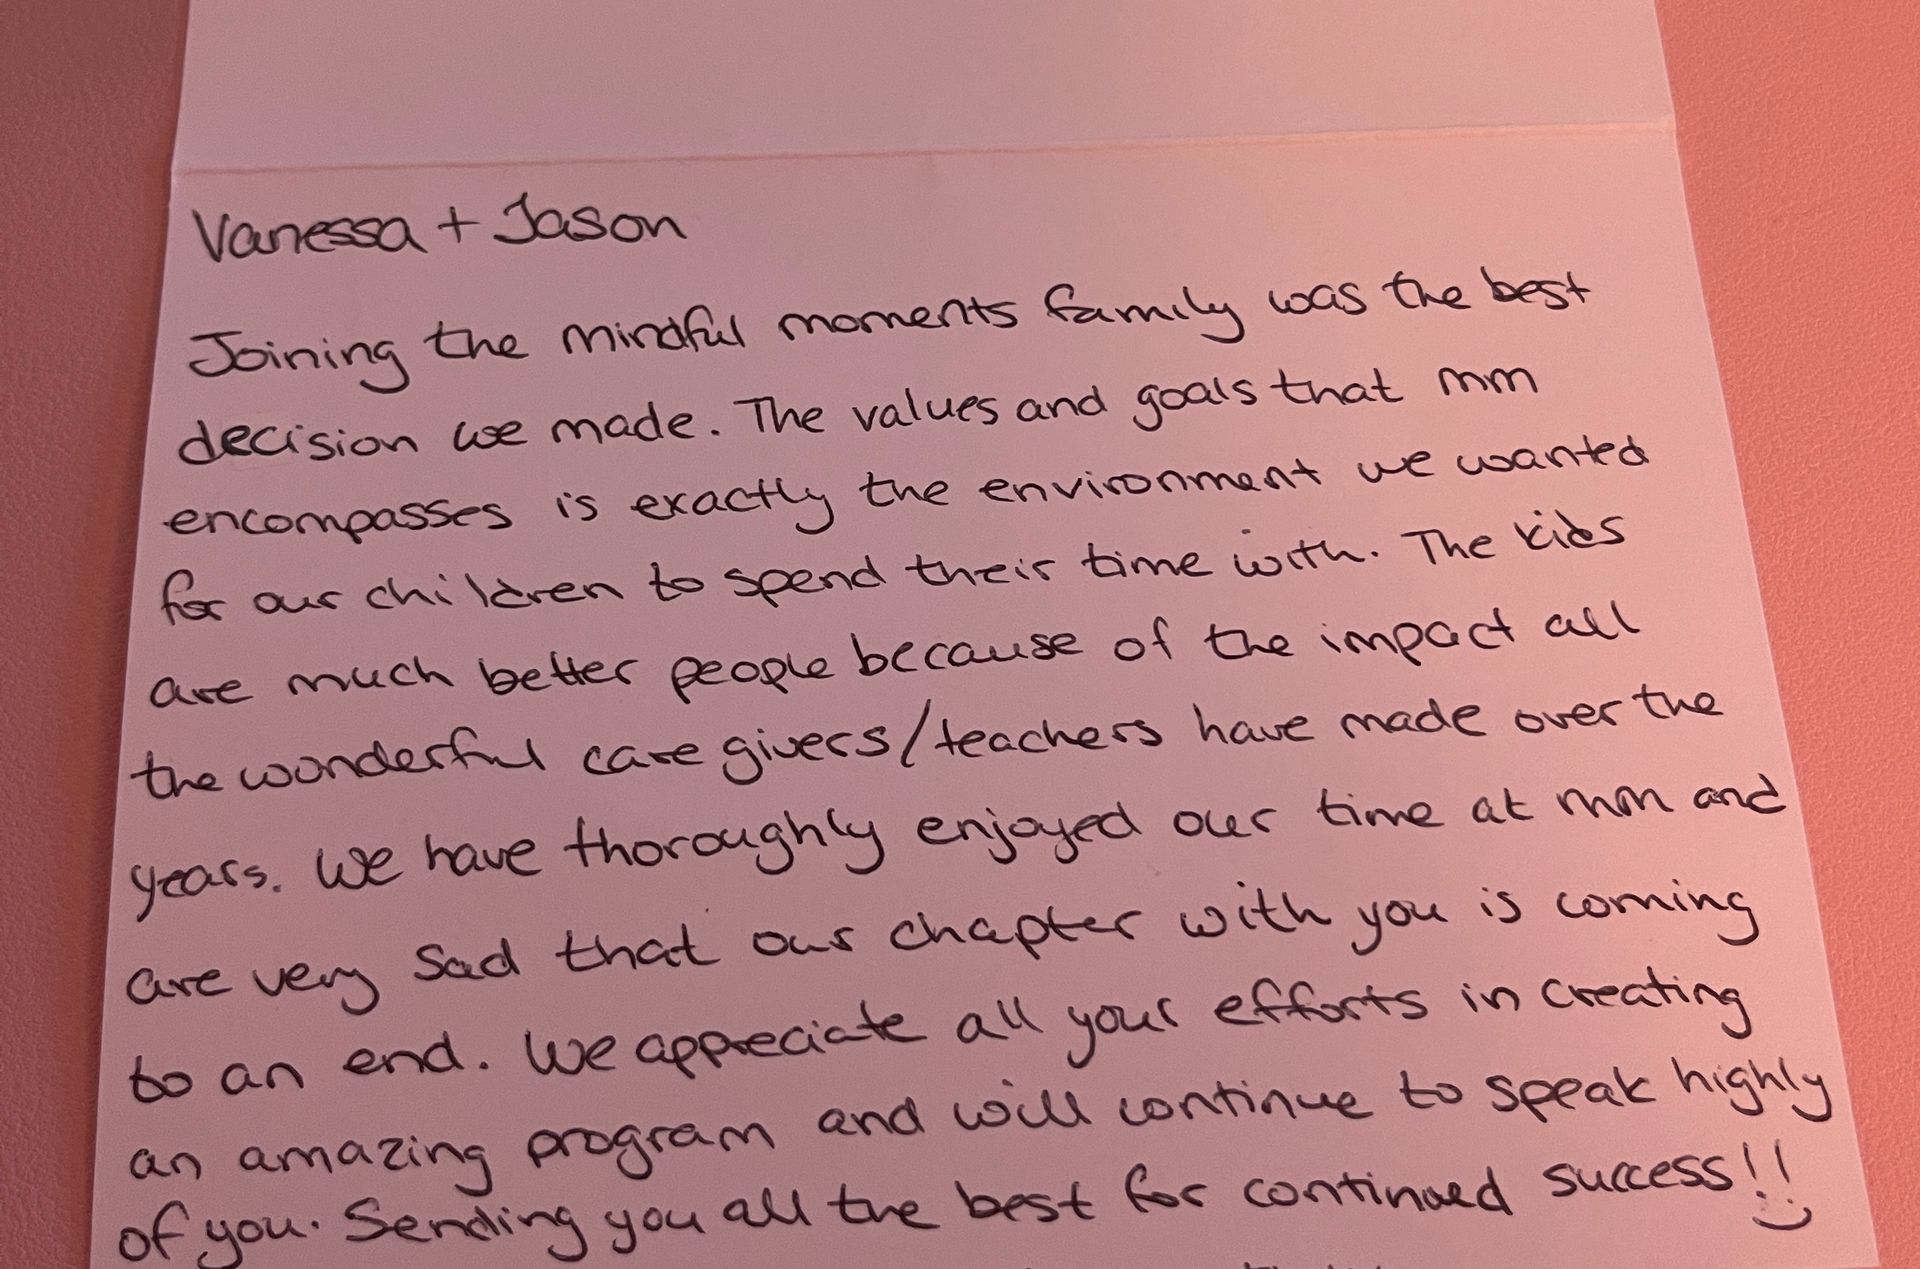 Vanessa + Jason
Joining the mindful moments family was the best
decision we made. The values and goals that mm
encompasses is exactly the environment we wanted
for our children to spend their time with. The kids
are much better people because of the impact all
the wonderful care givers/teachers have made over the
years. We have thoroughly enjoyed our time at mm and
are very sad that our chapter with you is coming
to an end. We appreciate all your efforts in creating
an amazing program and will continue to speak highly
of you. Sending you all the best for continued success!!